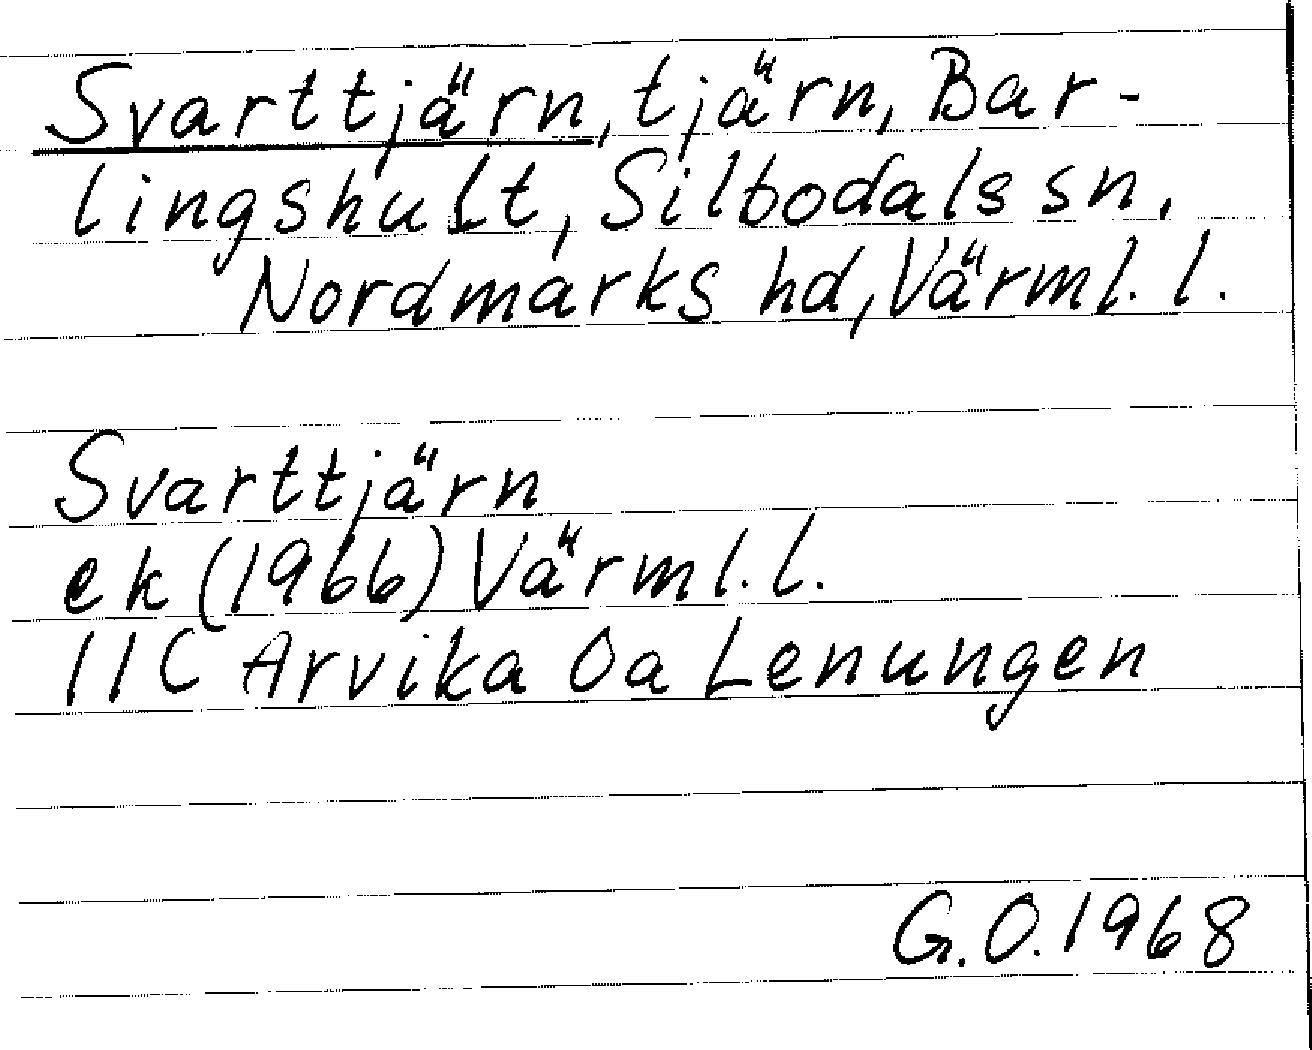 Svarttjärn, tjärn, Bar-
lingshult, Silbodals sn.
Nordmarks hd, Värml. l.
Svarttjärn
ek (1966) Värml. l.
11C Arvika Oa Lenungen
G.O. 1968